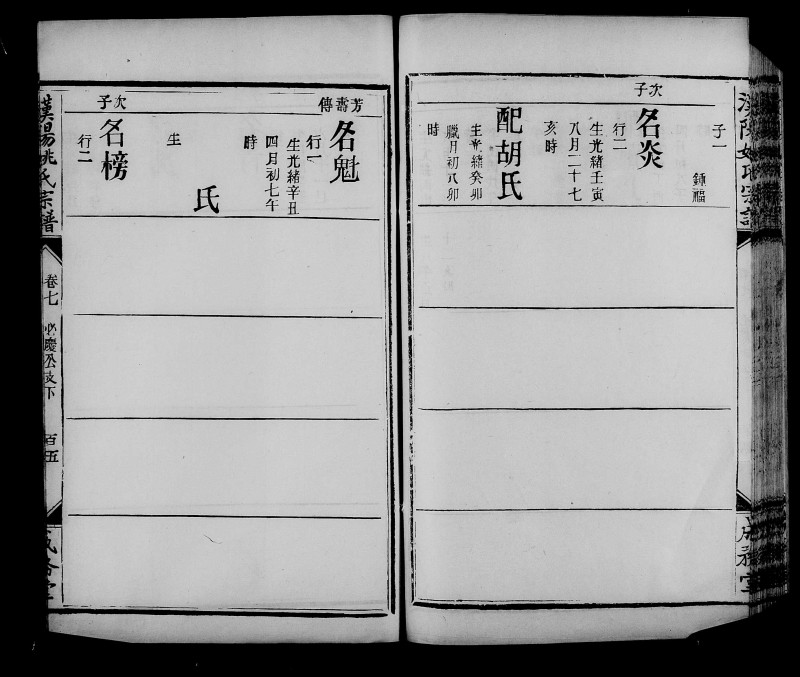 子一
鍾福
次子
名炎
行二
生光緒壬寅
八月二十七
亥時
配胡氏
生光緒癸卯
臘月初八卯
時
成務堂
芳壽傳
名魁
行一
生光緒辛丑
四月初七午
時
氏
生
次子
名榜
行二
漢陽姚氏宗譜
卷七
必慶公支下
百五
成務堂